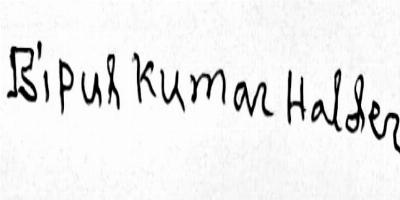 Bipul Kumar Halder